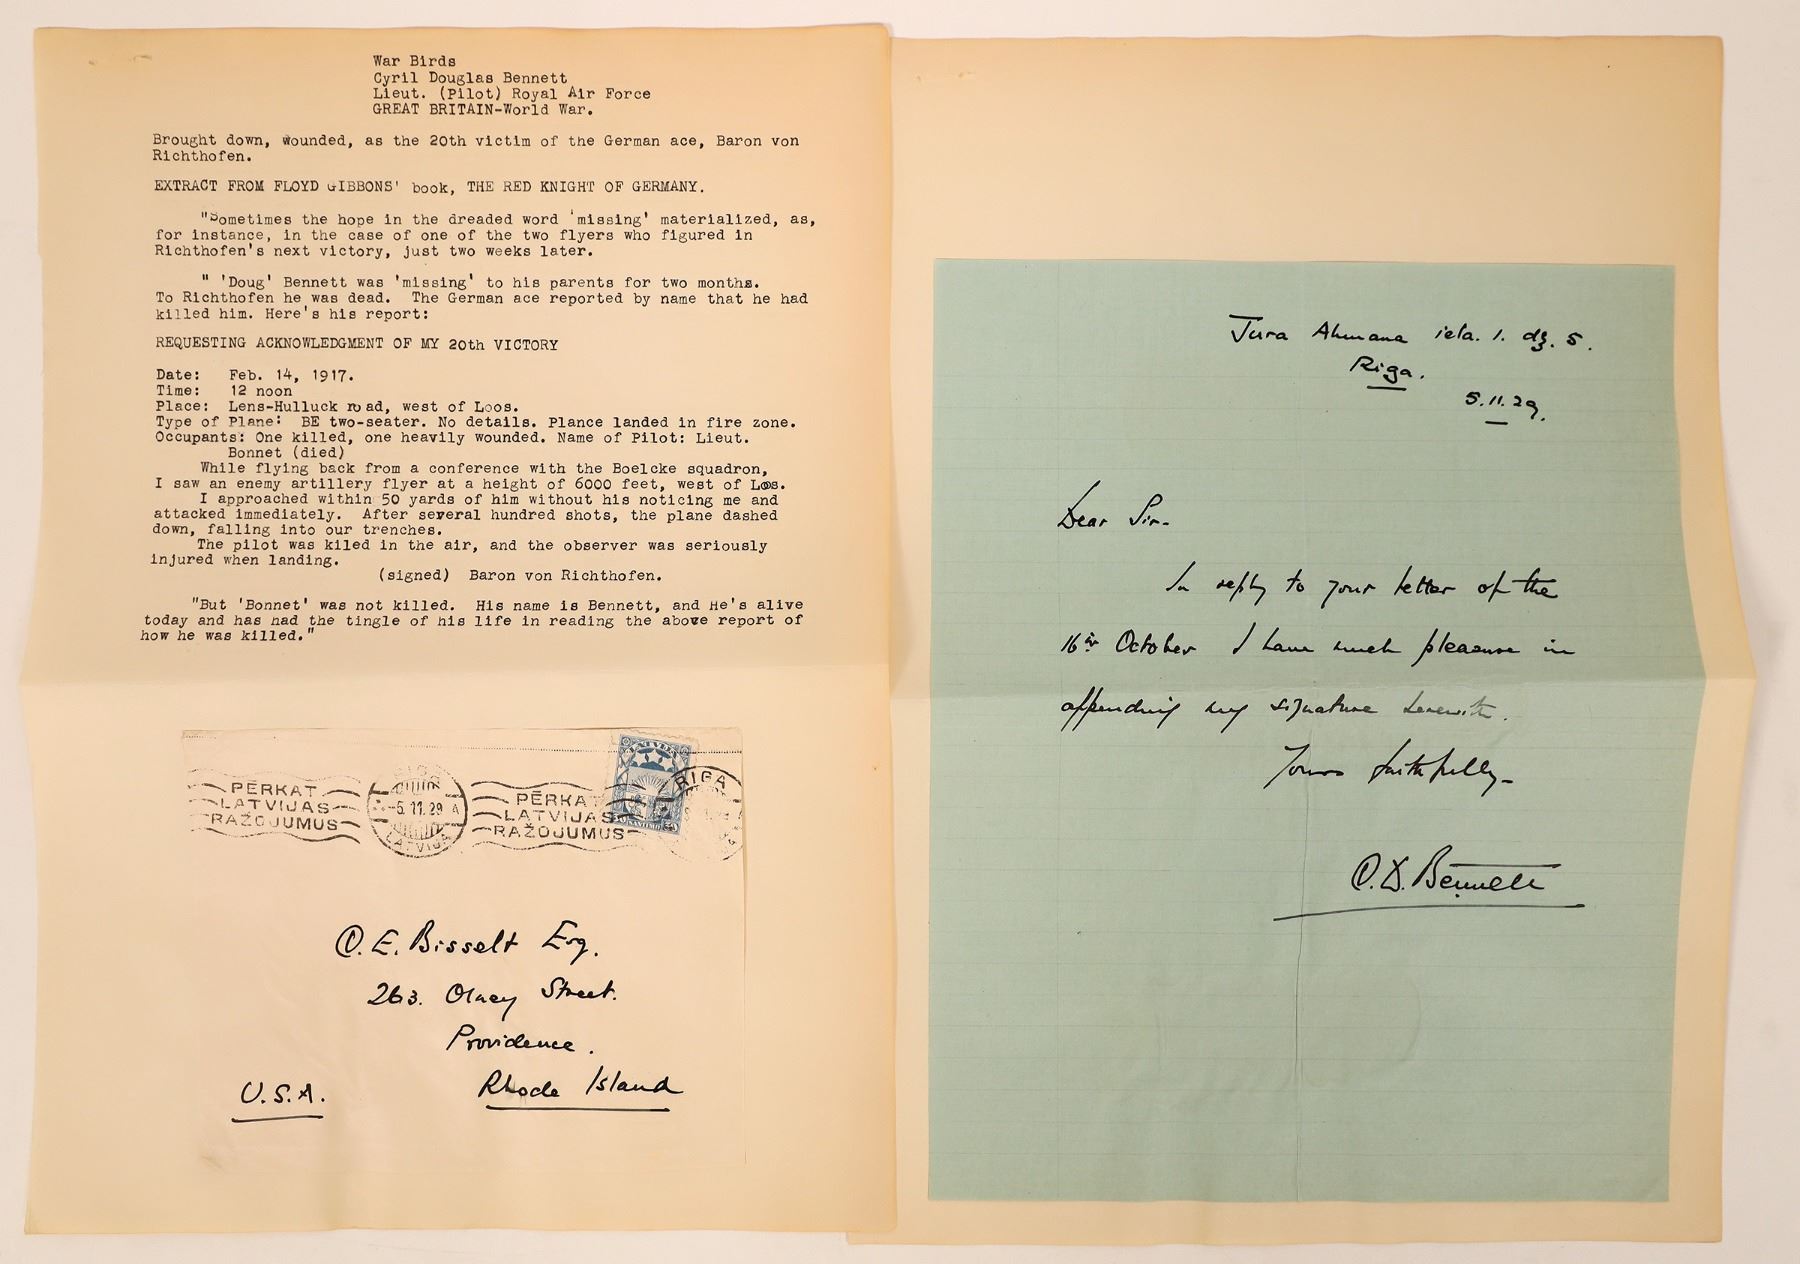 War Birds
Cyril Douglas Bennett
Lieut. (Pilot) Royal Air Force
GREAT BRITAIN-World War.
Brought down, wounded, as the 20th victim of the German ace, Baron von
Richthofen.
EXTRACT FROM FLOYD GIBBONS' book, THE RED KNIGHT OF GERMANY.
"Sometimes the hope in the dreaded word 'missing' materialized, as,
for instance, in the case of one of the two flyers who figured in
Richthofen's next victory, just two weeks later.
" 'Doug' Bennett was 'missing' to his parents for two months.
To Richthofen he was dead. The German ace reported by name that he had
killed him. Here's his report:
REQUESTING ACKNOWLEDGMENT OF MY 20th VICTORY
Date: Feb. 14, 1917.
Time: 12 noon
Place: Lens-Hulluck road, west of Loos.
Type of Plane: BE two-seater. No details. Plance landed in fire zone.
Occupants: One killed, one heavily wounded. Name of Pilot: Lieut.
Bonnet (died)
While flying back from a conference with the Boelcke squadron,
I saw an enemy artillery flyer at a height of 6000 feet, west of Loos.
I approached within 50 yards of him without his noticing me and
attacked immediately. After several hundred shots, the plane dashed
down, falling into our trenches.
The pilot was kiled in the air, and the observer was seriously
injured when landing.
(signed) Baron von Richthofen.
"But 'Bonnet' was not killed. His name is Bennett, and He's alive
today and has had the tingle of his life in reading the above report of
how he was killed."
PĒRKAT
LATVIJAS
RAŽOJUMUS
-5.11.29 A
LATVIJA
PĒRKAT
LATVIJAS
RAŽOJUMUS
LATVIJA
RIGA
C. E. Bisselt Esq.
263. Olney Street.
Providence.
Rhode Island
U.S.A.
Jura Alunana iela. 1. dz. 5.
Riga.
5.11.29.
Dear Sir-
In reply to your letter of the
16th October I have much pleasure in
appending my signature herewith.
Yours faithfully-
C. D. Bennett